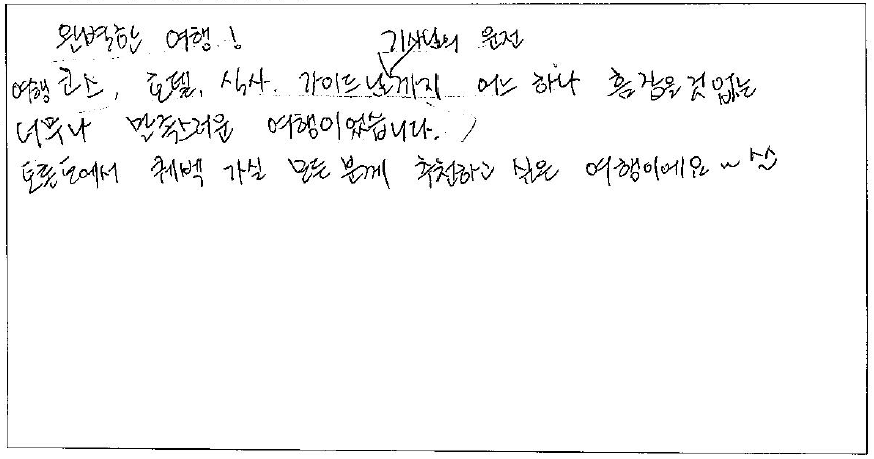 완벽한 여행! 기사님의 운전
여행 코스, 호텔, 식사, 가이드님까지 어느 하나 흠잡을것 없는
너무나 만족스러운 여행이었습니다.
토론토에서 퀘벡 가실 모든 분께 추천하고 싶은 여행이에요~ ^^